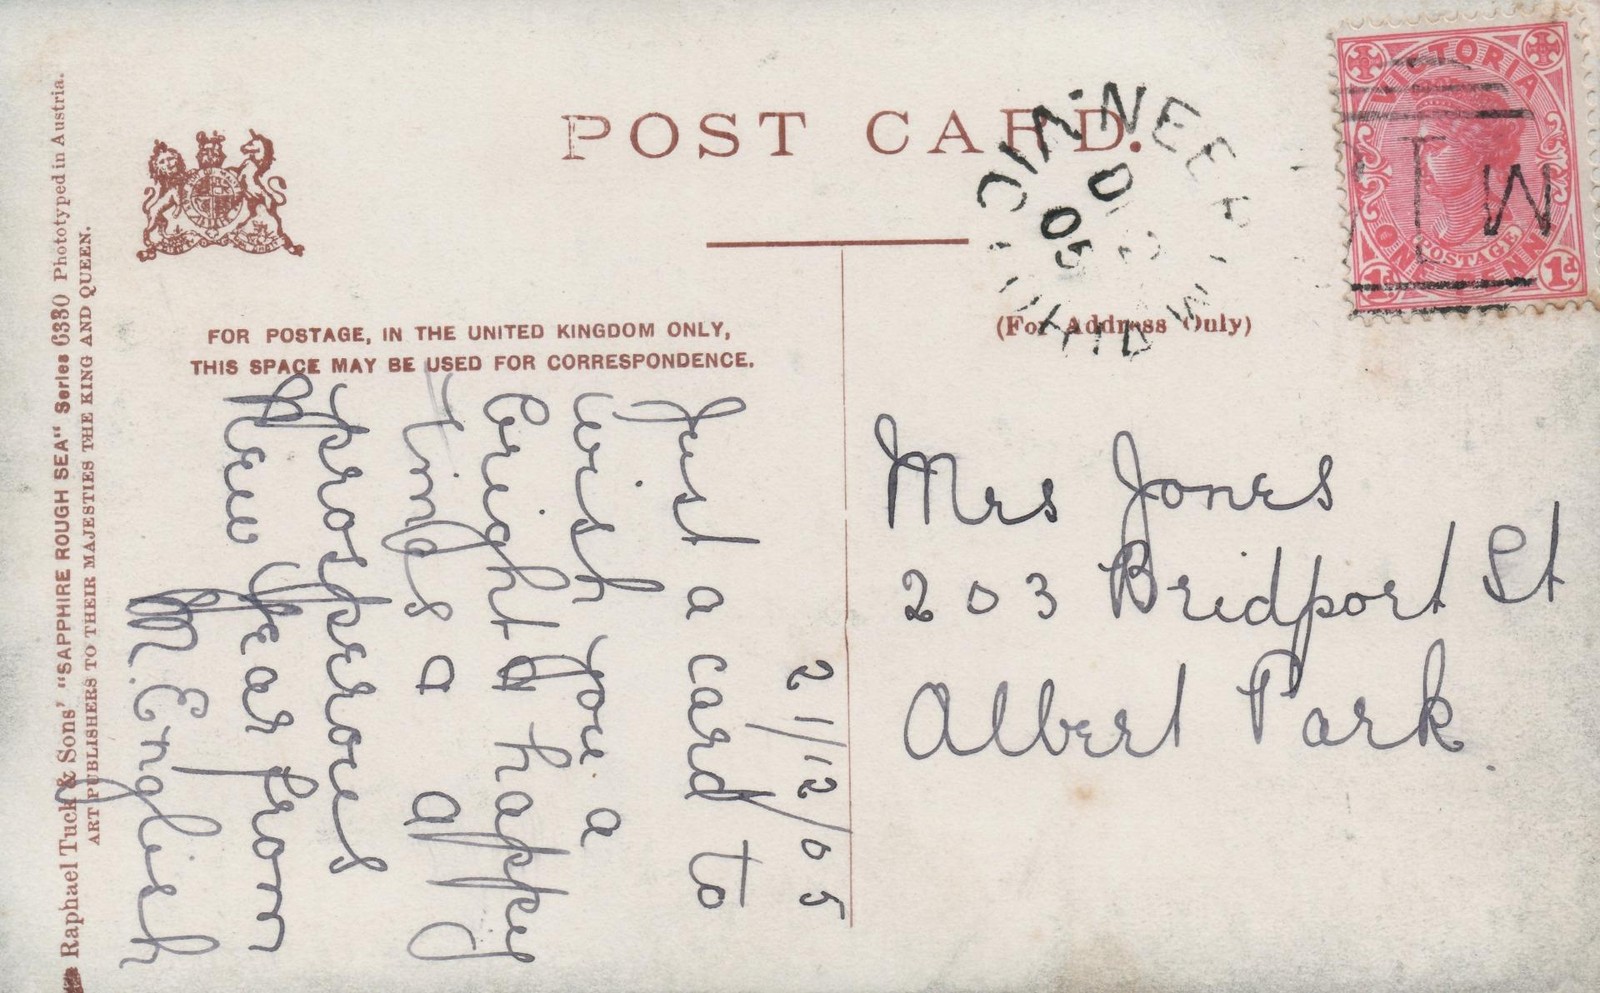 POST CARD.
VICTORIA
POSTAGE
ONE PENNY
1d. 1d.
05
FOR POSTAGE, IN THE UNITED KINGDOM ONLY,
THIS SPACE MAY BE USED FOR CORRESPONDENCE.
(For Address Only)
Raphael Tuck & Sons' "SAPPHIRE ROUGH SEA" Series 6330 Phototyped in Austria.
ART PUBLISHERS TO THEIR MAJESTIES THE KING AND QUEEN.
2/12/05
Just a card to
wish you a
bright & happy
Times & a
prosperous
New Year from
M. English
Mrs Jones
203 Bridport St
Albert Park